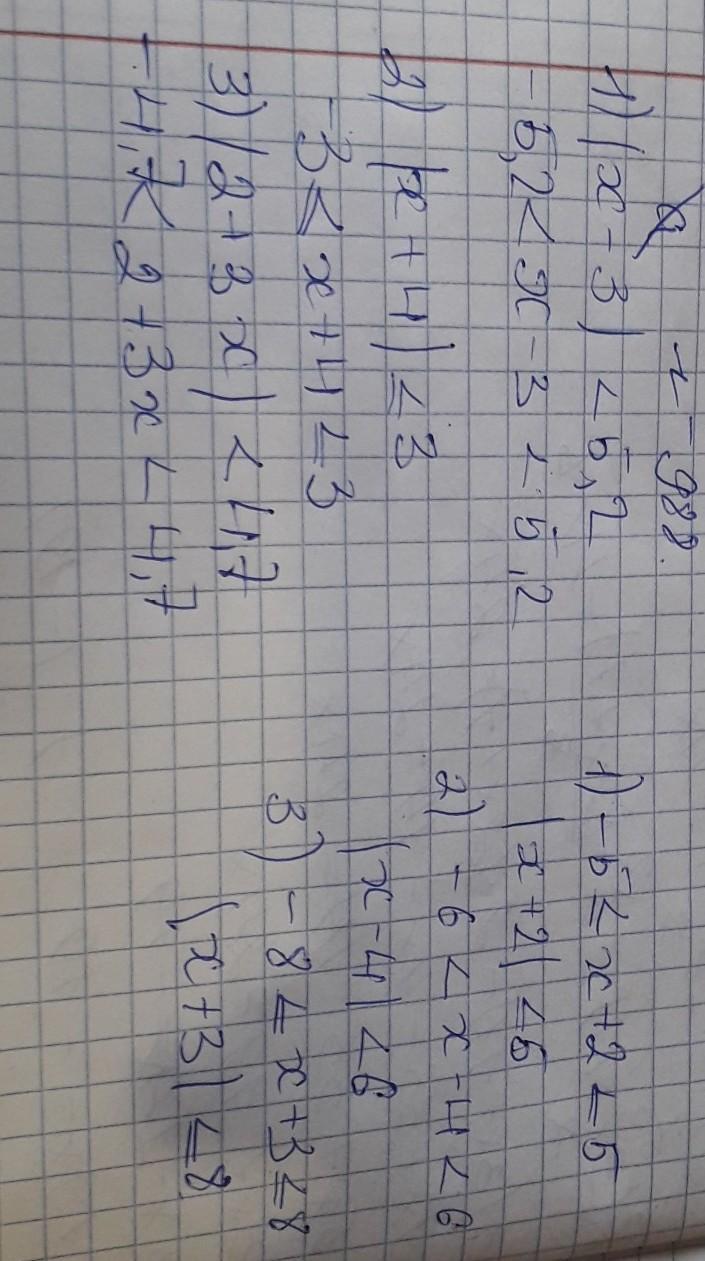 988
1) |x-3| < 5,2
-5,2 < x-3 < 5,2
2) |x+4| ≤ 3
-3 ≤ x+4 ≤ 3
3) |2+3x| < 4,7
-4,7 < 2+3x < 4,7
1) -5 ≤ x+2 ≤ 5
|x+2| ≤ 5
2) -6 < x-4 < 6
|x-4| < 6
3) -8 ≤ x+3 ≤ 8
|x+3| ≤ 8